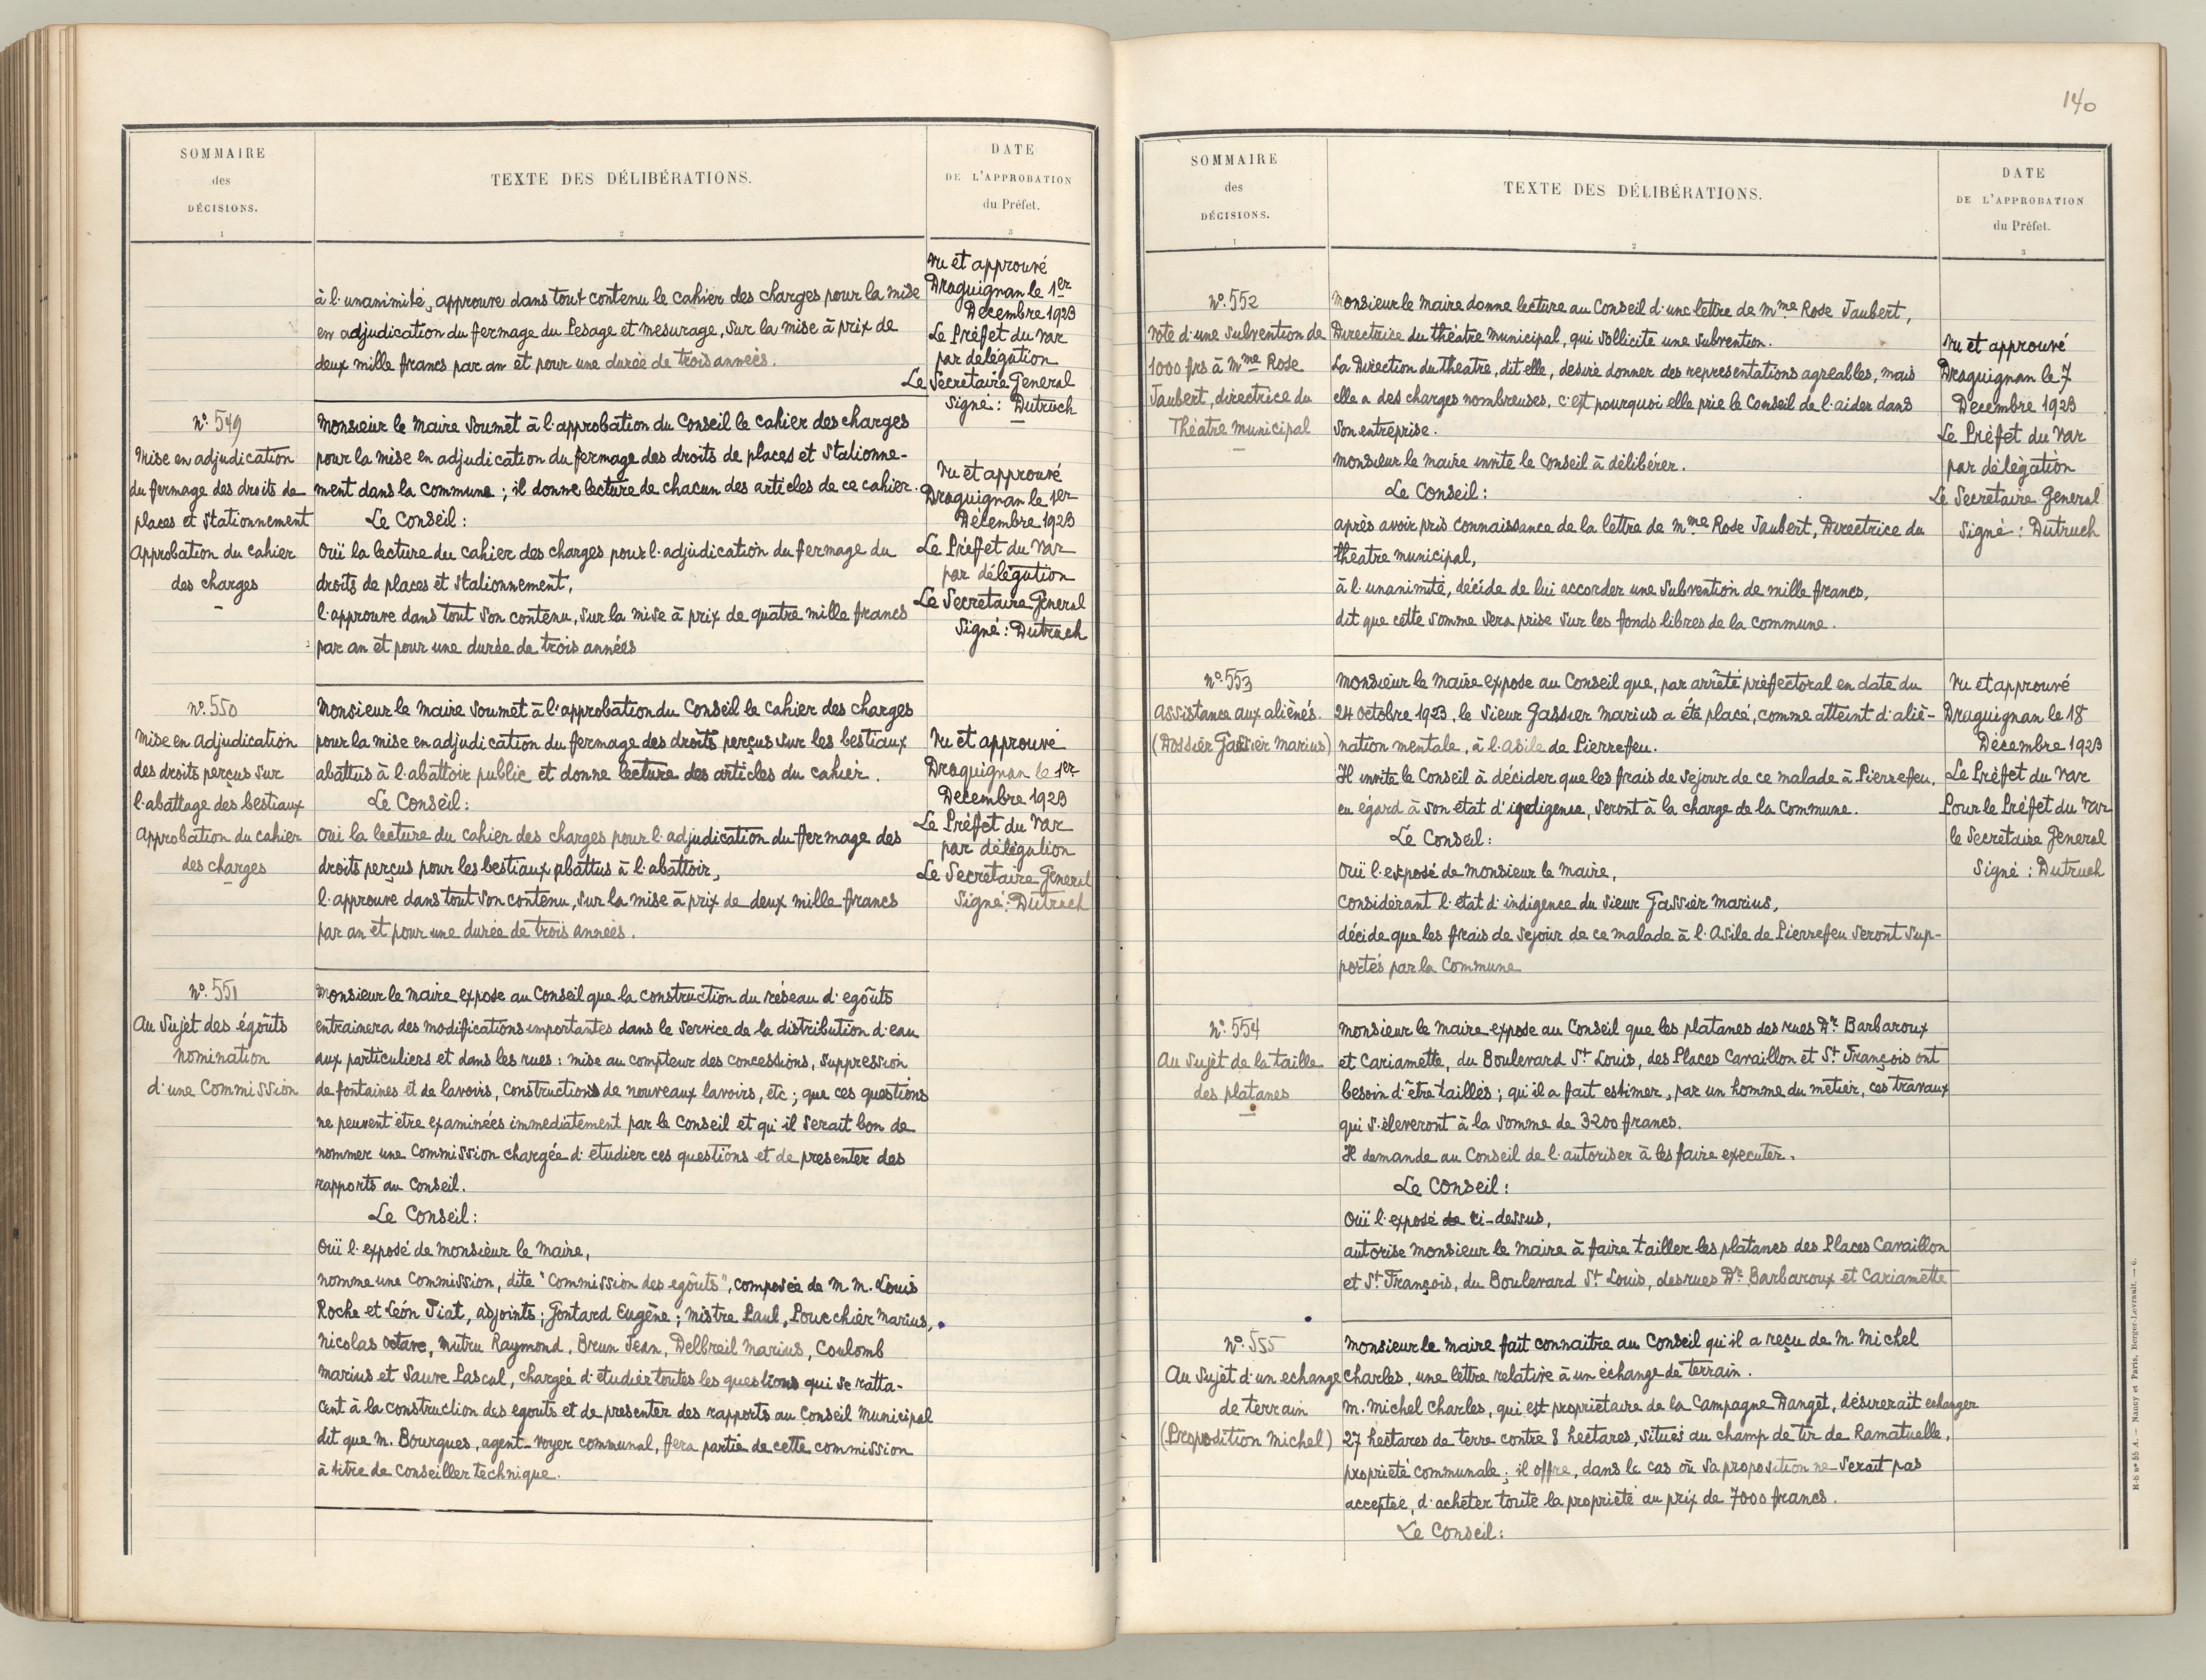 SOMMAIRE
des
DÉCISIONS.
1
TEXTE DES DÉLIBÉRATIONS.
2
DATE
DE L'APPROBATION
du Préfet.
3
à l'unanimité, approuve dans tout contenu le cahier des charges pour la mise
en adjudication du fermage du Pesage et mesurage, sur la mise à prix de
deux mille francs par an et pour une durée de trois années.
Vu et approuvé
Draguignan le 1er
Décembre 1923
Le Préfet du Var
par délégation
Le Secrétaire Général
Signé : Dutruch
N° 549
Mise en adjudication
du fermage des droits de
places et stationnement
Approbation du cahier
des charges
Monsieur le Maire soumet à l'approbation du Conseil le cahier des charges
pour la mise en adjudication du fermage des droits de places et stationne-
ment dans la commune ; il donne lecture de chacun des articles de ce cahier.
Le Conseil :
Ouï la lecture du cahier des charges pour l'adjudication du fermage du
droits de places et stationnement,
l'approuve dans tout son contenu, sur la mise à prix de quatre mille francs
par an et pour une durée de trois années
Vu et approuvé
Draguignan le 1er
Décembre 1923
Le Préfet du Var
par délégation
Le Secrétaire Général
Signé : Dutruch
N° 550
Mise en adjudication
des droits perçus sur
l'abattage des bestiaux
Approbation du cahier
des charges
Monsieur le Maire soumet à l'approbation du Conseil le cahier des charges
pour la mise en adjudication du fermage des droits perçus sur les bestiaux
abattus à l'abattoir public et donne lecture des articles du cahier.
Le Conseil :
Oui la lecture du cahier des charges pour l'adjudication du fermage des
droits perçus pour les bestiaux abattus à l'abattoir,
l'approuve dans tout son contenu, sur la mise à prix de deux mille francs
par an et pour une durée de trois années.
Vu et approuvé
Draguignan le 1er
Décembre 1923
Le Préfet du Var
par délégation
Le Secrétaire Général
Signé : Dutruch
N° 551
Au sujet des égoûts
nomination
d'une Commission
Monsieur le Maire expose au Conseil que la construction du réseau d'egoûts
entrainera des modifications importantes dans le service de la distribution d'eau
aux particuliers et dans les rues : mise au compteur des concessions, suppression
de fontaines et de lavoirs, constructions de nouveaux lavoirs, etc ; que ces questions
ne peuvent être examinées immédiatement par le Conseil et qu'il serait bon de
nommer une Commission chargée d'étudier ces questions et de présenter des
rapports au Conseil.
Le Conseil :
Ouï l'exposé de Monsieur le Maire,
nomme une Commission, dite "Commission des egoûts", composée de M.M. Louis
Roche et Léon Fiat, adjoints ; Gontard Eugène ; Mistre Paul, Poucchier Marius,
Nicolas Octave, Mutru Raymond, Brun Jean, Delbreil Marius, Coulomb
Marius et Sauve Pascal, chargée d'étudier toutes les questions qui se ratta-
cent à la construction des egouts et de présenter des rapports au Conseil Municipal
dit que M. Bourgues, agent-voyer communal, fera partie de cette commission
à titre de Conseiller technique.
140
SOMMAIRE
des
DÉCISIONS.
1
TEXTE DES DÉLIBÉRATIONS.
2
DATE
DE L'APPROBATION
du Préfet.
3
N° 552
Vote d'une subvention de
1000 frs à Mme Rose
Jaubert, directrice du
Théâtre Municipal
Monsieur le Maire donne lecture au Conseil d'une lettre de Mme Rose Jaubert,
Directrice du théâtre Municipal, qui sollicite une subvention.
La Direction du théatre, dit elle, désire donner des représentations agréables, mais
elle a des charges nombreuses, c'est pourquoi elle prie le Conseil de l'aider dans
son entreprise.
Monsieur le Maire invite le Conseil à délibérer.
Le Conseil :
après avoir pris connaissance de la lettre de Mme Rose Jaubert, Directrice du
théatre Municipal,
à l'unanimité, décide de lui accorder une subvention de mille francs,
dit que cette somme sera prise sur les fonds libres de la commune.
Vu et approuvé
Draguignan le 7
Décembre 1923
Le Préfet du Var
par délégation
Le Secrétaire Général
Signé : Dutruch
N° 553
Assistance aux aliénés.
(Dossier Gassier Marius)
Monsieur le Maire expose au Conseil que, par arrêté préfectoral en date du
24 Octobre 1923, le Sieur Gassier Marius a été placé, comme atteint d'alié-
nation mentale, à l'asile de Pierrefeu.
Il invite le Conseil à décider que les frais de séjour de ce malade à Pierrefeu,
eu égard à son état d'indigence, seront à la charge de la Commune.
Le Conseil :
Ouï l'exposé de Monsieur le Maire,
Considérant l'état d'indigence du Sieur Gassier Marius,
décide que les frais de séjour de ce malade à l'Asile de Pierrefeu seront sup-
portés par la Commune
Vu et approuvé
Draguignan le 18
Décembre 1923
Le Préfet du Var
Pour le Préfet du Var
le Secrétaire Général
Signé : Dutruch
N° 554
Au sujet de la taille
des platanes
Monsieur le Maire expose au Conseil que les platanes des rues Dr Barbaroux
et Cariamette, du Boulevard St Louis, des Places Cavaillon et St François ont
besoin d'être taillés ; qu'il a fait estimer, par un homme du métier, ces travaux
qui s'éleveront à la somme de 3200 francs.
Il demande au Conseil de l'autoriser à les faire executer.
Le Conseil :
Ouï l'exposé de ci-dessus,
autorise Monsieur le Maire à faire tailler les platanes des Places Cavaillon
et St François, du Boulevard St Louis, des rues Dr Barbaroux et Cariamette
N° 555
Au sujet d'un echange
de terrain
(Proposition Michel)
Monsieur le Maire fait connaitre au Conseil qu'il a reçu de M. Michel
Charles, une lettre relative à un échange de terrain.
M. Michel Charles, qui est propriétaire de la Campagne Danget, désirerait echanger
27 hectares de terre contre 8 hectares, situés au champ de tir de Ramatuelle,
propriété communale ; il offre, dans le cas où sa proposition ne serait pas
acceptée, d'acheter toute la propriété au prix de 7000 francs.
Le Conseil :
R-S n° 55 A. — Nancy et Paris, Berger-Levrault. — 6.